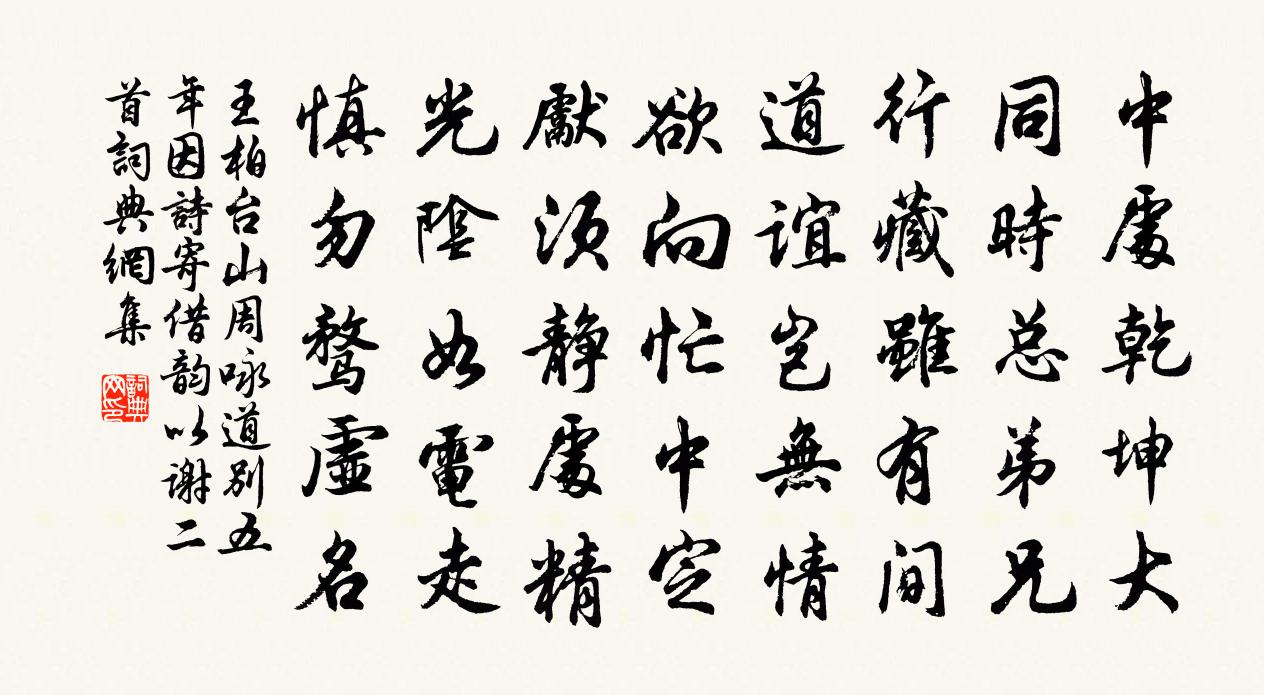 中處乾坤大
同時总弟兄
行藏雖有間
道誼豈無情
欲向忙中定
獻須靜處精
光陰如電走
慎勿騖虛名
王柏台山周咏道别五
年因詩寄借韵以謝二
首詞典網集
詞典网印